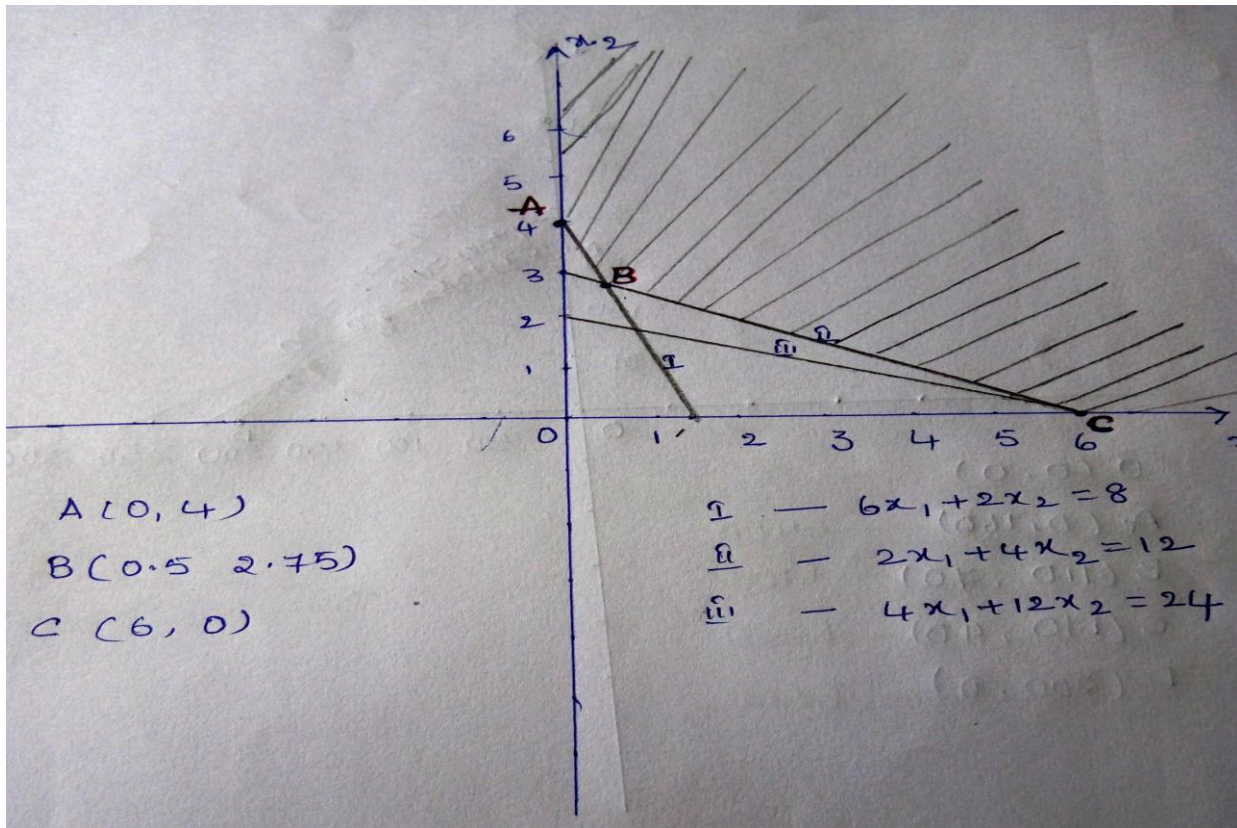 x2
6
5
A
4
3
B
2
ii
iii
1
I
0 1 2 3 4 5 6 C
A (0, 4)
B (0.5 2.75)
C (6, 0)
I — 6x₁ + 2x₂ = 8
ii — 2x₁ + 4x₂ = 12
iii — 4x₁ + 12x₂ = 24